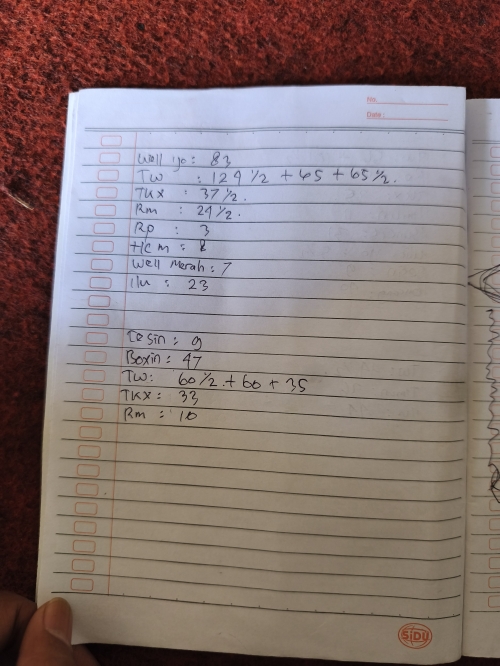 No.
Date:
Well ijo : 83
TW : 129 1/2 + 65 + 65 1/2.
TKX : 37 1/2.
Rm : 29 1/2.
Rp : 3
Hcm : 8
Well Merah : 7
: 23
Desin : 9
Boxin : 47
TW : 60 1/2. + 60 + 35
TKX : 33
Rm : 10
SiDU